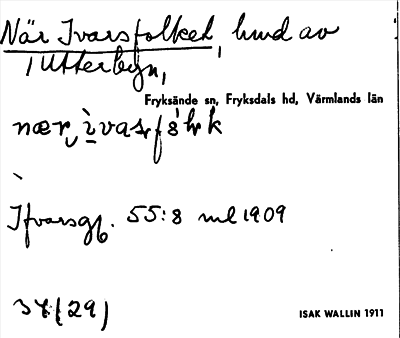 När Ivarsfolket, lund av
i Utterbyn,
Fryksände sn, Fryksdals hd, Värmlands län
Ifvarsgb. 55:8 ml 1909
34 (29)
ISAK WALLIN 1911